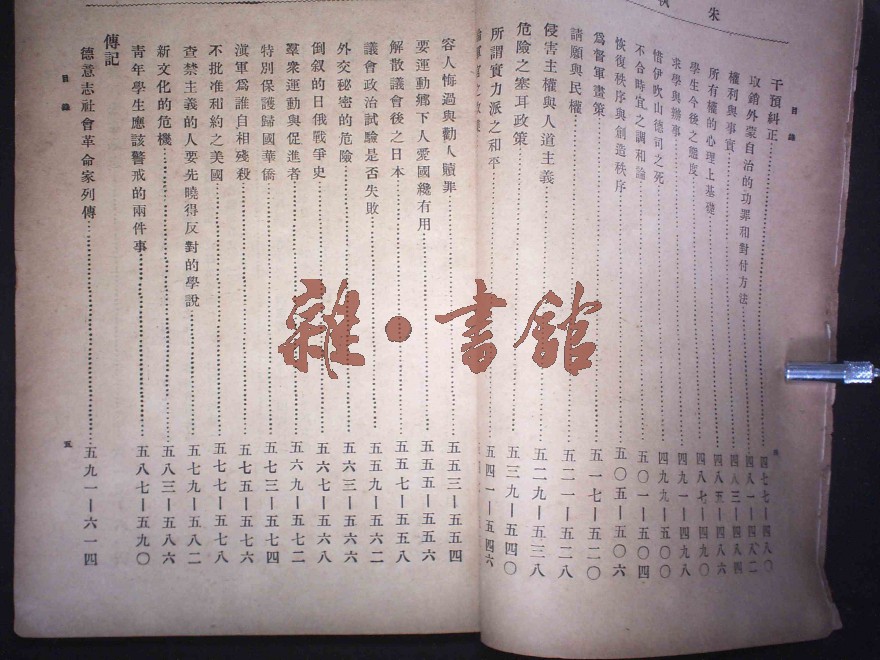 朱
目錄
干預糾正……四七七—四八〇
取銷外蒙自治的功罪和對付方法……四八一—四八二
權利與事實……四八三—四八四
所有權的心理上基礎……四八五—四八六
學生今後之態度……四八七—四九〇
求學與辦事……四九一—四九八
惜伊吹山德司之死……四九九—五〇〇
不合時宜之調和論……五〇一—五〇四
恢復秩序與創造秩序……五〇五—五〇六
爲督軍畫策……五一七—五二〇
請願與民權……五二一—五二八
侵害主權與人道主義……五二九—五三八
危險之塞耳政策……五三九—五四〇
所謂實力派之和平……五四一—五四六
容人悔過與勸人贖罪……五五三—五五四
要運動鄉下人愛國纔有用……五五五—五五六
解散議會後之日本……五五七—五五八
議會政治試驗是否失敗……五五九—五六二
外交秘密的危險……五六三—五六六
倒叙的日俄戰爭史……五六七—五六八
羣衆運動與促進者……五六九—五七二
特別保護歸國華僑……五七三—五七四
滇軍爲誰自相殘殺……五七五—五七六
不批准和約之美國……五七七—五七八
查禁主義的人要先曉得反對的學說……五七九—五八二
新文化的危機……五八三—五八六
青年學生應該警戒的兩件事……五八七—五九〇
傳記
德意志社會革命家列傳……五九一—六一四
目錄
五
雜·書館